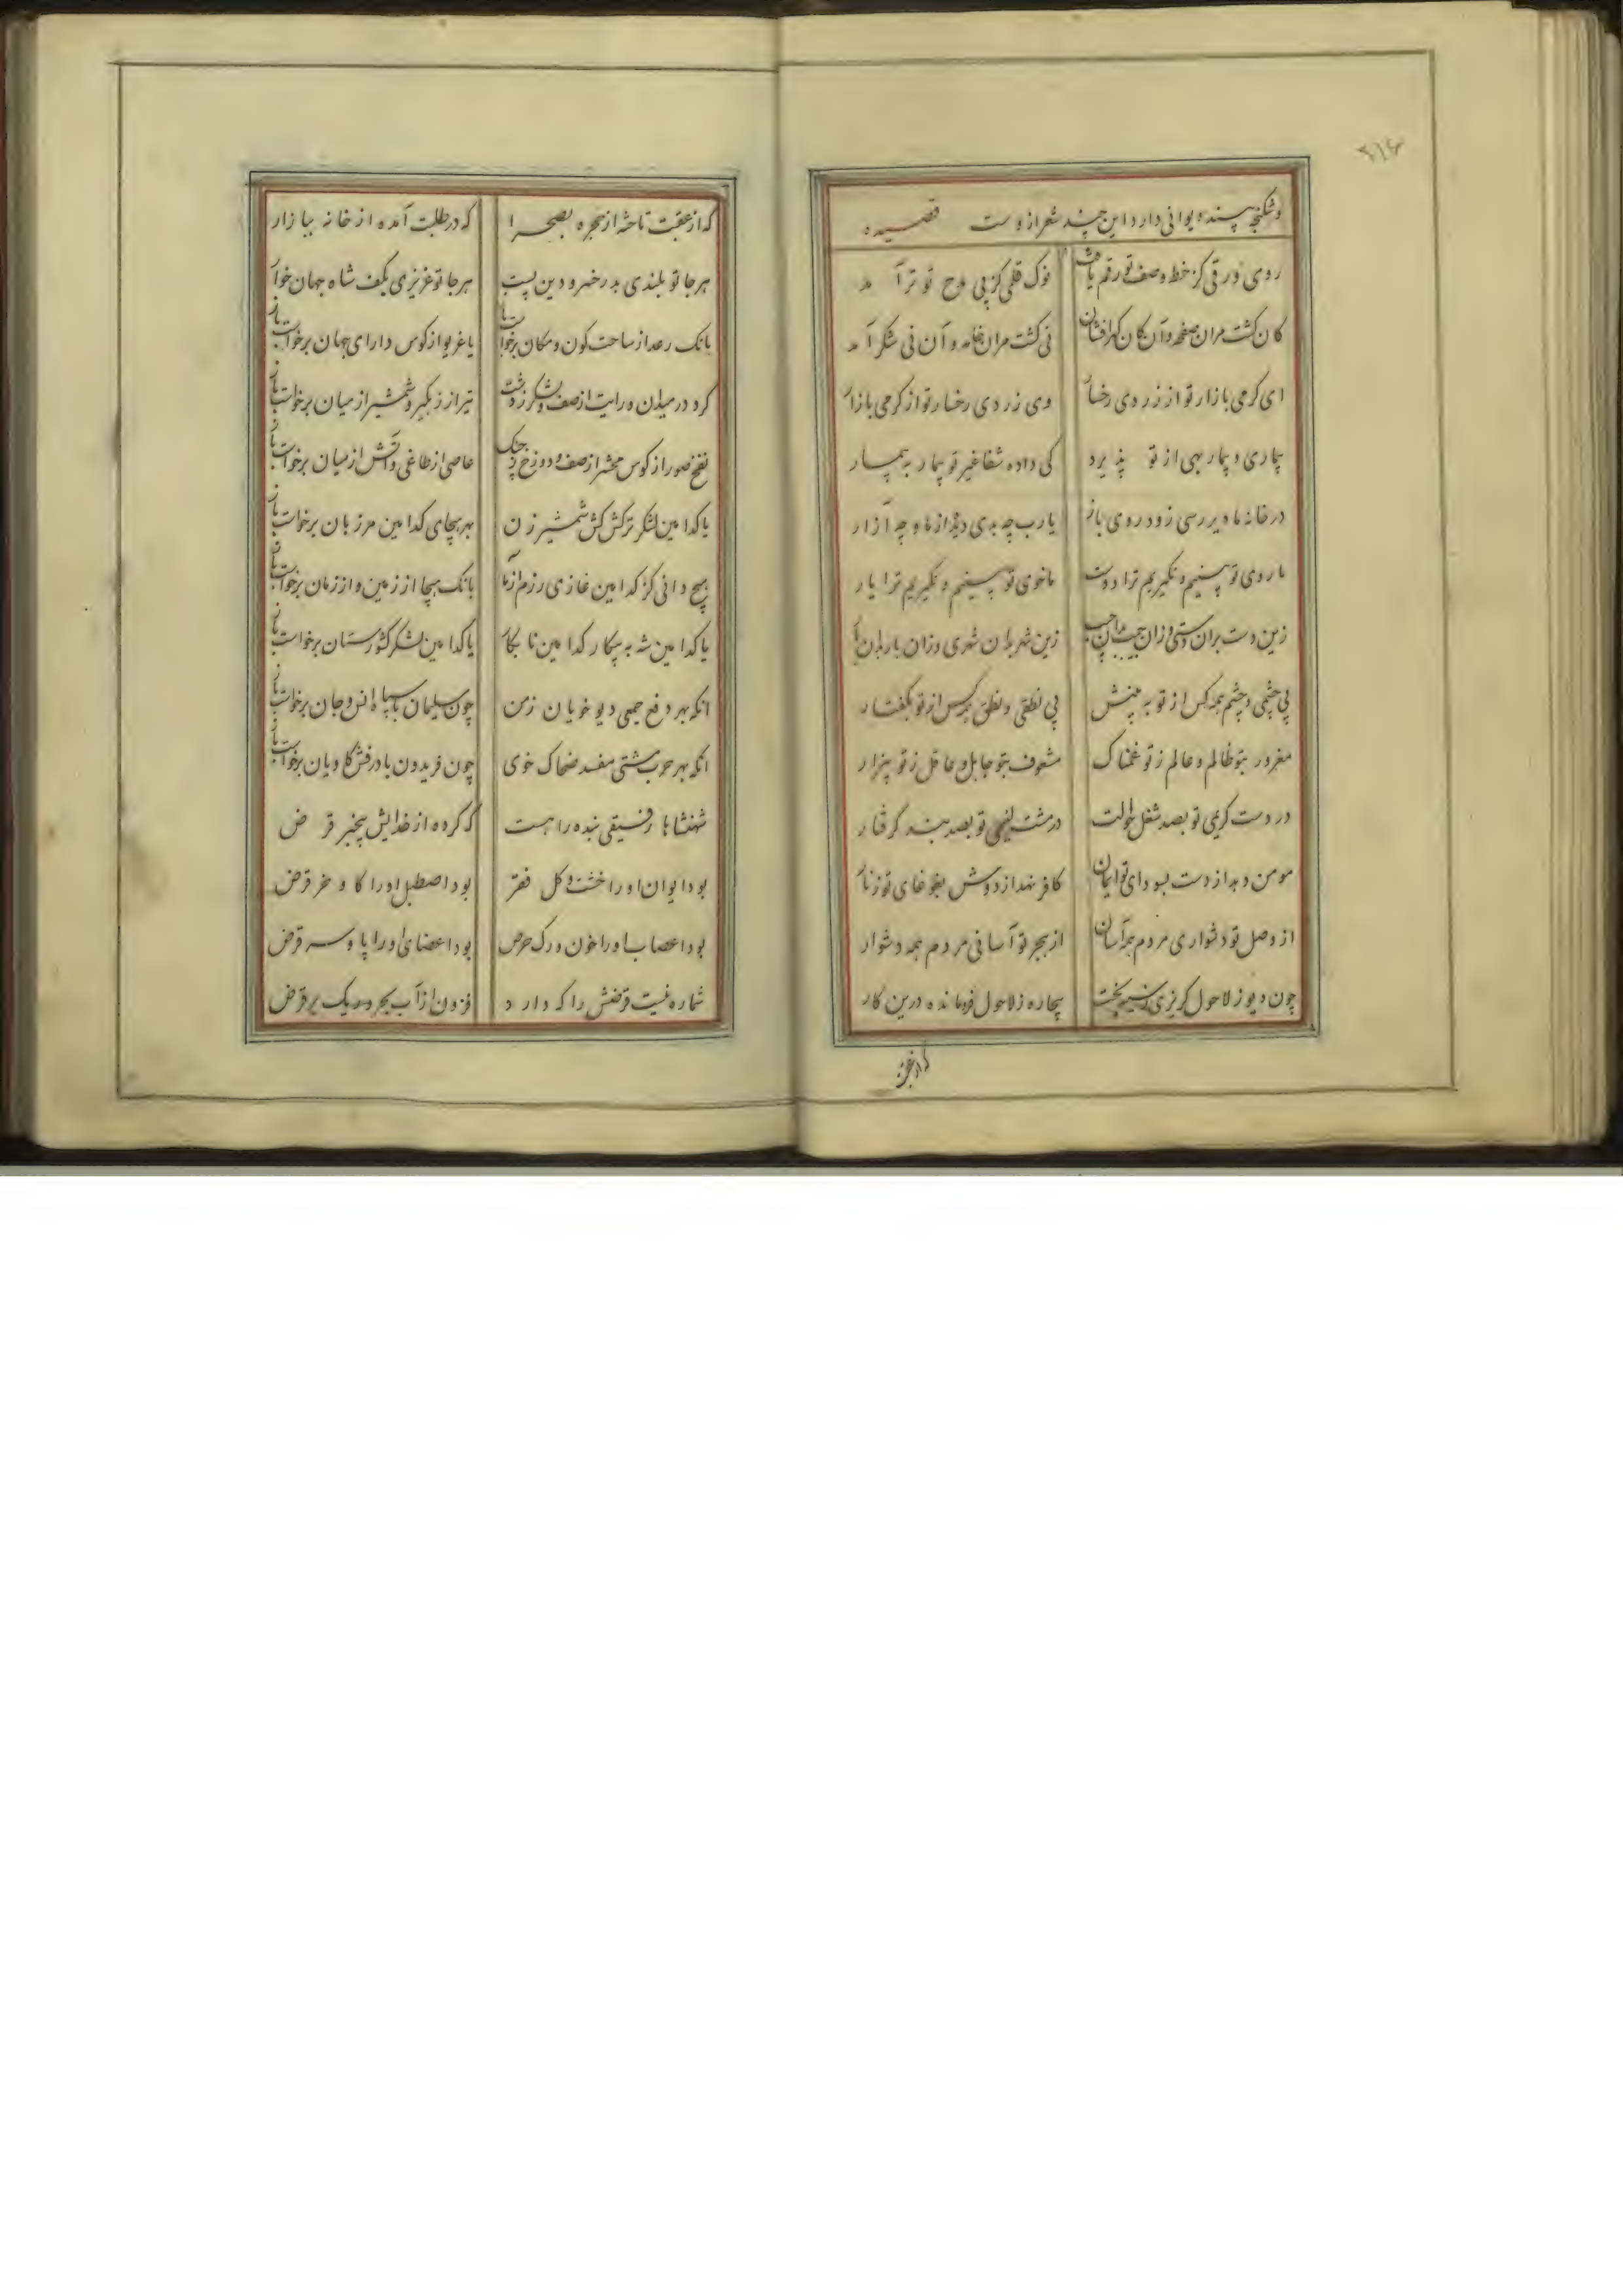 وشکنجه پسنده یوانی دارد این چند شعر ازوست قصیده
روی ورقی کز خط وصف تو رقم یافت نوک قلمی کز پی مدح تو تر آمد
کان گشت مران صفحه و آن کان گهرافشان نی گشت مران خامه و آن نی شکر آمد
ای گرمی بازار تو از زردی رخسار وی زردی رخسار تو از گرمی بازار
بیماری و بیمار بهی از تو پذیرد کی داده شفا غیر تو بیمار به بیمار
در خانه ما دیر رسی زود روی باز یارب چه بدی دیده از ما و چه آزار
ما روی تو بینیم و نگیریم ترا دوست ما خوی تو بینیم و نگیریم ترا یار
زین دست بران دستی وزان جیب بران جیب زین شهر بدان شهری وزان بار بدان بار
بی چشمی و چشم همه کس از تو به بینش بی نطقی و نطق همه کس از تو بگفتار
مغرور بتو ظالم و عالم ز تو غمناک مشعوف بتو جاهل و عاقل ز تو بیزار
در دست کریمی تو بصد شغل حوالت در مشت لئیمی تو بصد بند گرفتار
مومن دهد از دست بسودای تو ایمان کافر نهد از دوش بغوغای تو زنار
از وصل تو دشواری مردم همه آسان از هجر تو آسانی مردم همه دشوار
چون دیو ز لاحول گریزی بیچاره ز لاحول فرومانده درین کار
که از عقبت
که از عقبت تاخته از حجره بصحرا که در طلبت آمده از خانه ببازار
هر جا تو بلندی بدر خسرو دین پست هر جا تو عزیزی بکف شاه جهان خوار
بانک رعد از ساحت کون و مکان برخواست باز یا غریو از کوس دارای جهان برخواست باز
گرد در میدان و رایت از صف و لشکر ز دشت تیر از زهگیر و شمشیر از میان برخواست باز
نفخ صور از کوس محشر از صف و دوزخ ز جنک عاصی از طاغی و آتش از میان برخواست باز
یا کدامین لشکر ترکش کش شمشیر زن بهر هیجای کدامین مرزبان برخواست باز
هیچ دانی کز کدامین غازی رزم آزما بانک هیجا از زمین و از زمان برخواست باز
یا کدامین شه به پیکار کدامین نابکار یا کدامین لشکر کشورستان برخواست باز
آنکه بهر دفع جمعی دیو خویان زمن چون سلیمان با سپاه انس و جان برخواست باز
آنکه بهر حرب مشتی مفسد ضحاک خوی چون فریدون با درفش کاویان برخواست باز
شهنشاها رفیقی بنده را هست که کرده از خدایش بیخبر قرض
بود ایوان او را خشت و گل فقر بود اصطبل او را گاو و خر قرض
بود اعصاب او را خون و رگ حرص بود اعضای او را پا و سر قرض
شماره نیست قرضش را که دارد فزون از آب بحر و ریک بر قرض